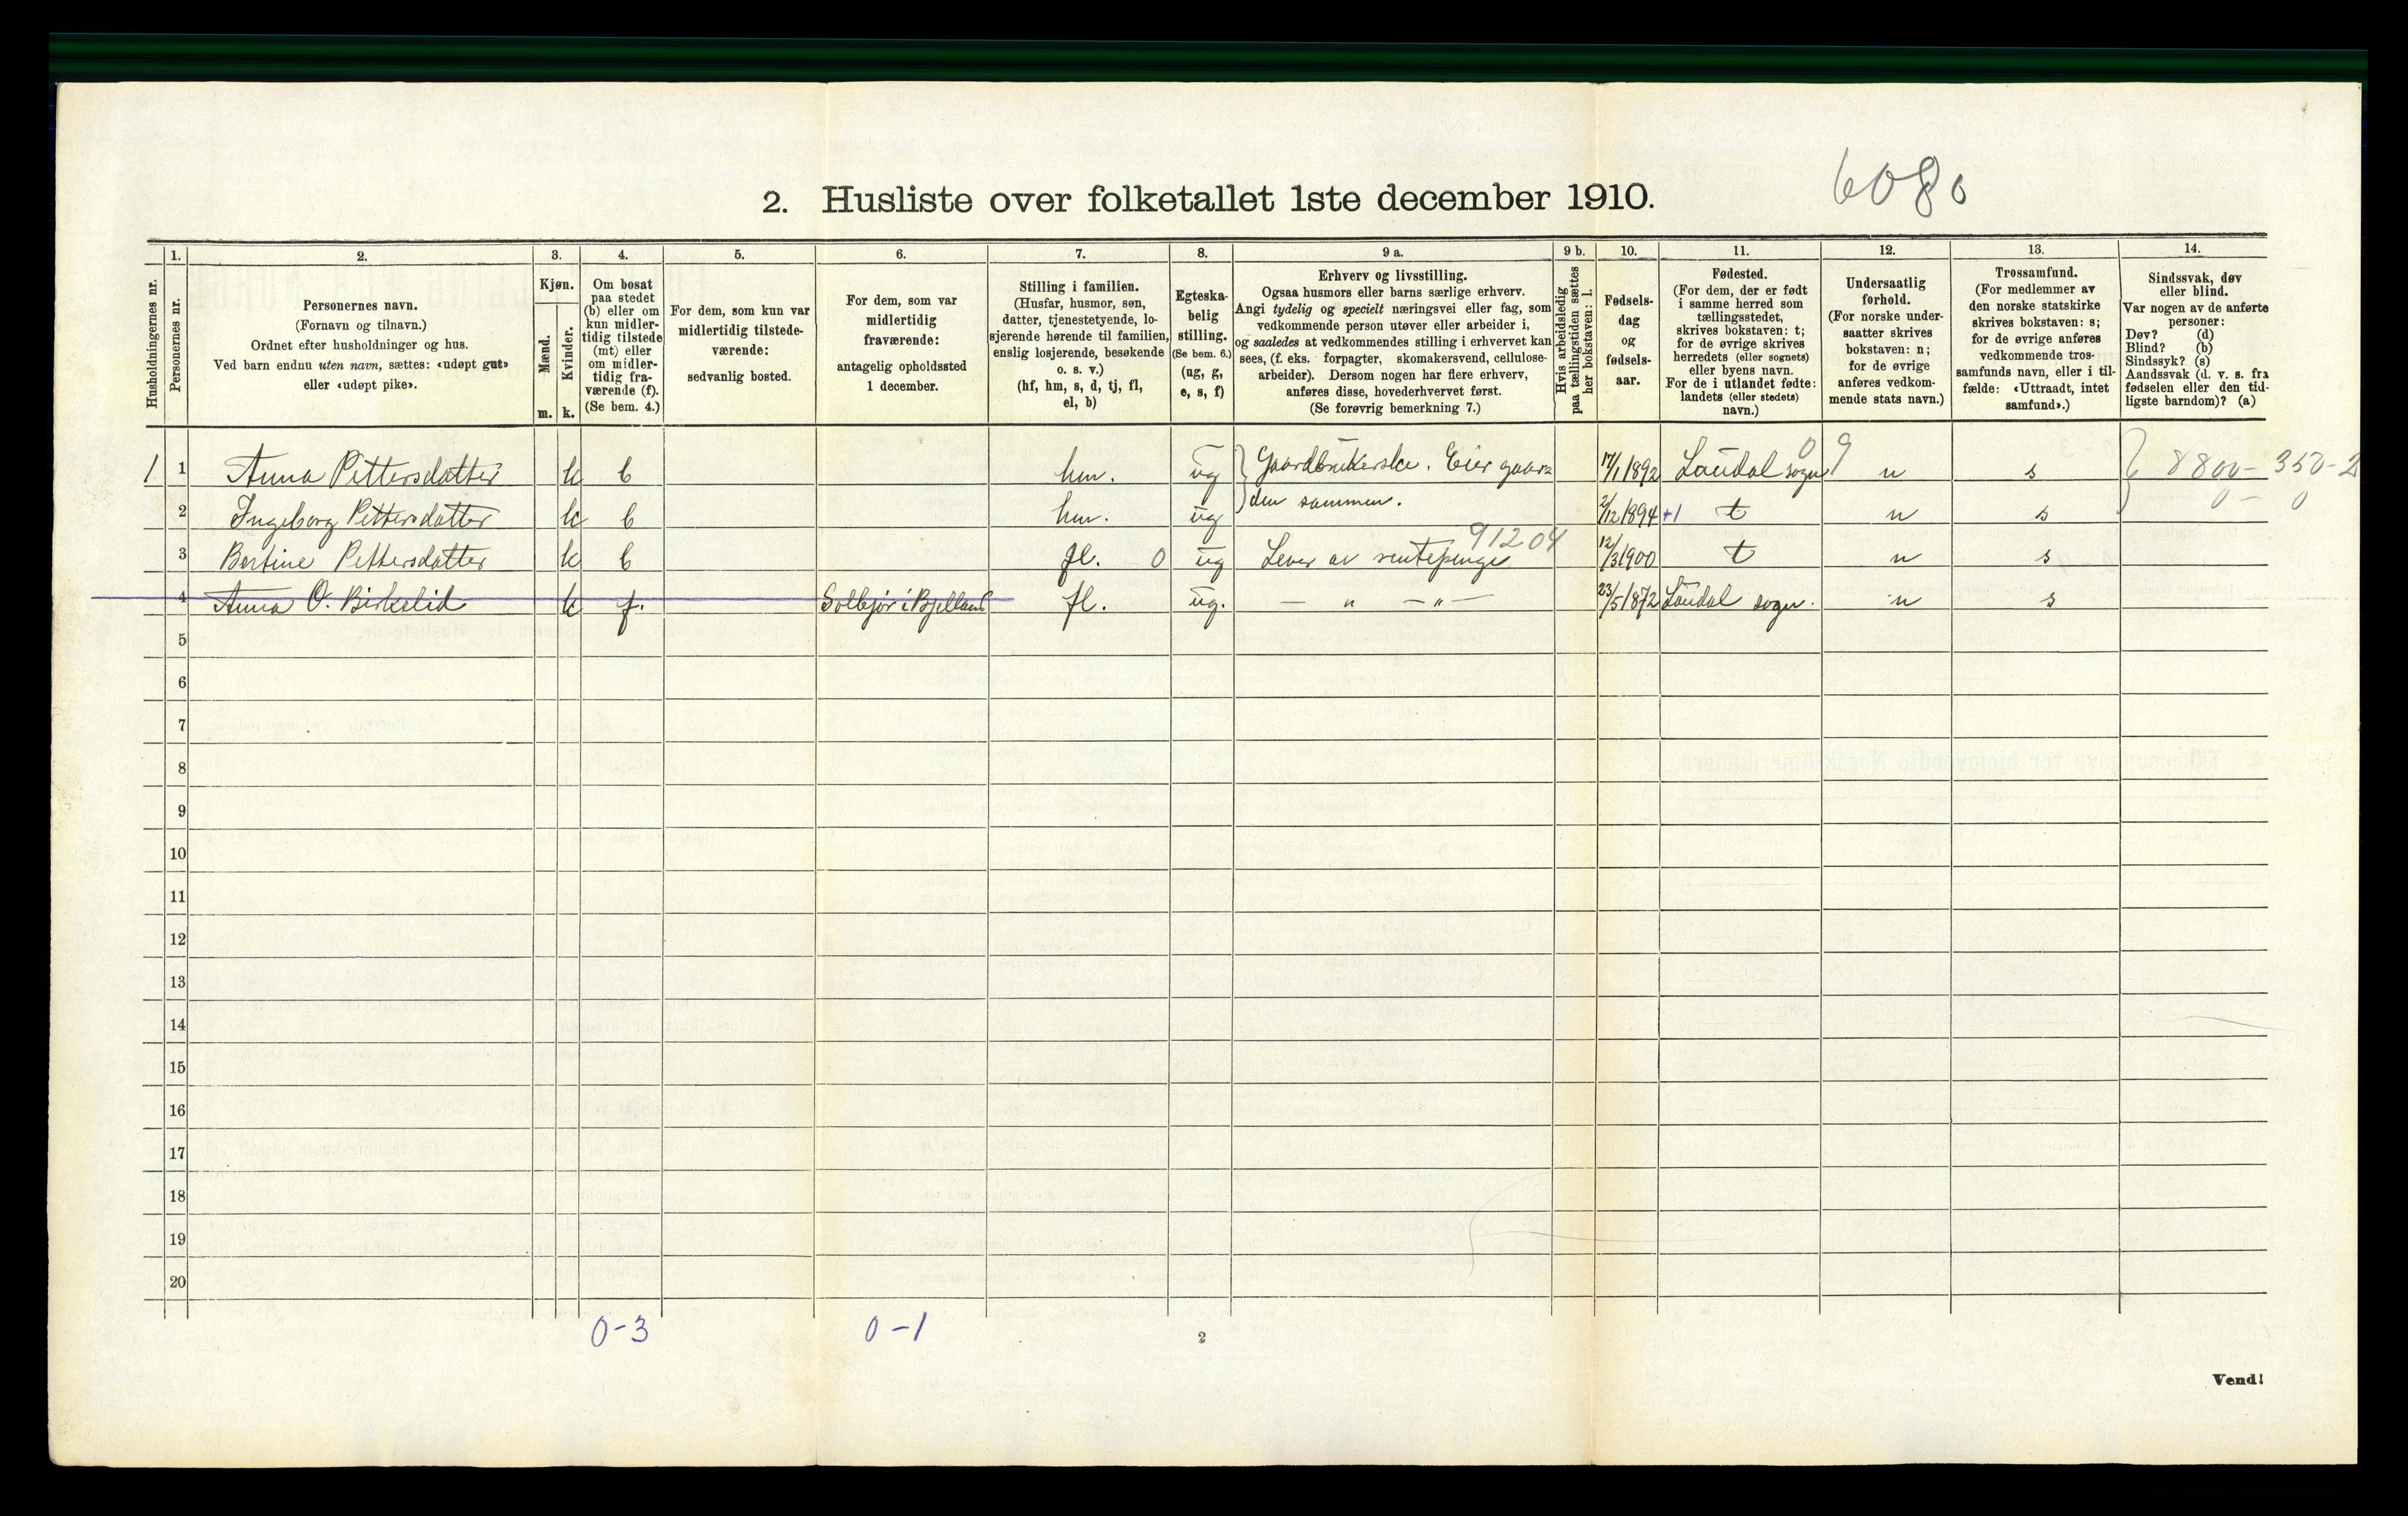 6080
2. Husliste over folketallet 1ste december 1910.
Husholdningernes nr.
1.
Personernes nr.
2.
Personernes navn.
(Fornavn og tilnavn.)
Ordnet efter husholdninger og hus.
Ved barn endnu uten navn, sættes: «udøpt gut»
eller «udøpt pike».
3.
Kjøn.
Mænd.
m.
Kvinder.
k.
4.
Om bosat
paa stedet
(b) eller om
kun midler-
tidig tilstede
(mt) eller
om midler-
tidig fra-
værende (f).
(Se bem. 4.)
5.
For dem, som kun var
midlertidig tilstede-
værende:
sedvanlig bosted.
6.
For dem, som var
midlertidig
fraværende:
antagelig opholdssted
1 december.
7.
Stilling i familien.
(Husfar, husmor, søn,
datter, tjenestetyende, lo-
sjerende hørende til familien,
enslig losjerende, besøkende
o. s. v.)
(hf, hm, s, d, tj, fl,
el, b)
8.
Egteska-
belig
stilling.
(Se bem. 6.)
(ug, g,
e, s, f)
9 a.
Erhverv og livsstilling.
Ogsaa husmors eller barns særlige erhverv.
Angi tydelig og specielt næringsvei eller fag, som
vedkommende person utøver eller arbeider i,
og saaledes at vedkommendes stilling i erhvervet kan
sees, (f. eks. forpagter, skomakersvend, cellulose-
arbeider). Dersom nogen har flere erhverv,
anføres disse, hovederhvervet først.
(Se forøvrig bemerkning 7.)
9 b.
Hvis arbeidsledig
paa tællingstiden sættes
her bokstaven: l.
10.
Fødsels-
dag
og
fødsels-
aar.
11.
Fødested.
(For dem, der er født
i samme herred som
tællingsstedet,
skrives bokstaven: t;
for de øvrige skrives
herredets (eller sognets)
eller byens navn.
For de i utlandet fødte:
landets (eller stedets)
navn.)
12.
Undersaatlig
forhold.
(For norske under-
saatter skrives
bokstaven: n;
for de øvrige
anføres vedkom-
mende stats navn.)
13.
Trossamfund.
(For medlemmer av
den norske statskirke
skrives bokstaven: s;
for de øvrige anføres
vedkommende tros-
samfunds navn, eller i til-
fælde: «Uttraadt, intet
samfund».)
14.
Sindssvak, døv
eller blind.
Var nogen av de anførte
personer:
Døv? (d)
Blind? (b)
Sindssyk? (s)
Aandssvak (d. v. s. fra
fødselen eller den tid-
ligste barndom)? (a)
1 1 Anna Pettersdatter k b hm. ug Gaardbrukerske. Eier gaar= 17/1 1892 Laudal sogn 0 9 n s 8800- 350-2
den sammen. 0 - 0
2 Ingeborg Pettersdatter k b hm. ug 2/12 1894 +1 t n s
3 Bertine Pettersdatter k b fl. 0 ug Lever av rentepenge 91204 12/3 1900 t n s
4 Anna O. Birkelid k f. Solbjør i Bjelland fl. ug. — " — " — 23/5 1872 Laudal sogn. n s
5
6
7
8
9
10
11
12
13
14
15
16
17
18
19
20
0-3 0-1
2
Vend!